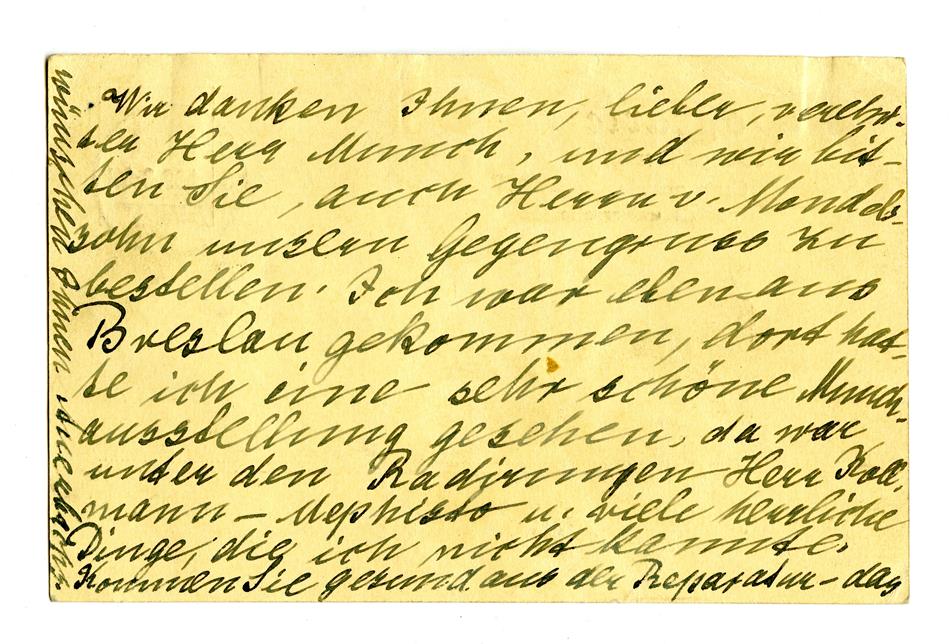 Wir danken Ihnen, lieber, verehr-
ter Herr Munch, und wir bit-
ten Sie, auch Herrn v. Mendels-
sohn unsern Gegengruss zu
bestellen. Ich war eben aus
Breslau gekommen, dort hat-
te ich eine sehr schöne Munch-
ausstellung gesehen, da war
unter den Radirungen Herr Koll-
mann – Mephisto u. viele herrliche
Dinge, die ich nicht kannte.
Kommen Sie gesund aus der Reparatur – das
wünschen Ihnen